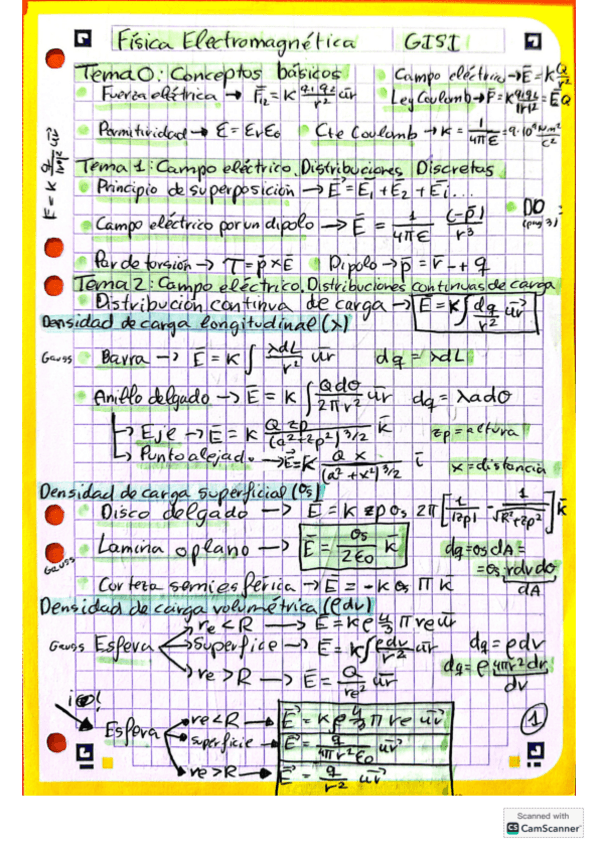 Física Electromagnética GISI
Tema 0: Conceptos básicos
• Campo eléctrico → E̅ = K Q/r² u̅r
• Fuerza elétrica → F̅₁₂ = K q₁q₂/r² u̅r
Ley Coulomb → F̅ = K q₁q₂/|r|² = E̅Q
• Permitividad → ε = εrε0
Cte Coulomb → K = 1/4πε = 9·10⁹ Nm²/c²
E̅ = K Q/|r|² u̅r
Tema 1: Campo eléctrico. Distribuciones Discretas
• Principio de superposición → E⃗ = E̅₁ + E̅₂ + E̅i...
• Campo eléctrico por un dipolo → E̅ = 1/4πε (-p̅)/r³
• DO
(pag 3)
• Par de torsión → T = p̅ × E̅ Dipolo → p̅ = r̅-+ q
Tema 2: Campo eléctrico. Distribuciones continuas de carga
• Distribución continua de carga → E̅ = K∫ dq/r² u̅r
Densidad de carga longitudinal (λ)
Gauss • Barra → E̅ = K ∫ λdL/r² u̅r dq = λdL
• Anillo delgado → E̅ = K ∫ Qdσ/2πr² u̅r dq = λadσ
Eje → E̅ = K Q zp/(a²+zp²)^3/2 k̅ zp = altura
Punto alejad. → E̅ = K Q x/(a²+x²)^3/2 i̅ x = distancia
Densidad de carga superficial (σs)
• Disco delgado → E̅ = K zp σs 2π [1/|zp| - 1/√R²+zp²] k̅
• Lamina o plano → E̅ = σs/2ε0 k̅
Gauss
dq = σs dA =
= σs rdvdσ
dA
• Corteza semiesférica → E̅ = -K σs π k
Densidad de carga volumétrica (ρdv)
re < R → E̅ = Kρ 4/3 π re u̅r
Gauss Esfera superfice → E̅ = K∫ ρdv/r² u̅r dq = ρdv
re > R → E̅ = Q/re² u̅r dq = ρ 4πr²dr
dv
¡OJO!
Esfera
• re < R → E⃗ = Kρ 4/3 π re u̅r
• superficie → E⃗ = q/4πr²ε0 u̅r
• re > R → E⃗ = q/r² u̅r
1
Scanned with
CS CamScanner